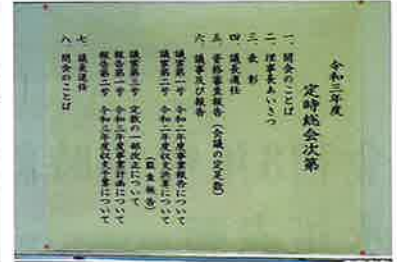 令和三年度
定時総会次第
一、開会のことば
二、理事長あいさつ
三、表彰
四、議長選任
五、資格審査報告（会議の定足数）
六、議事及び報告
議案第一号 令和二年度事業報告について
議案第二号 令和二年度収支決算について
（監査報告）
議案第三号 定款の一部改正について
報告第一号 令和三年度事業計画について
報告第二号 令和三年度収支予算について
七、議長退任
八、閉会のことば